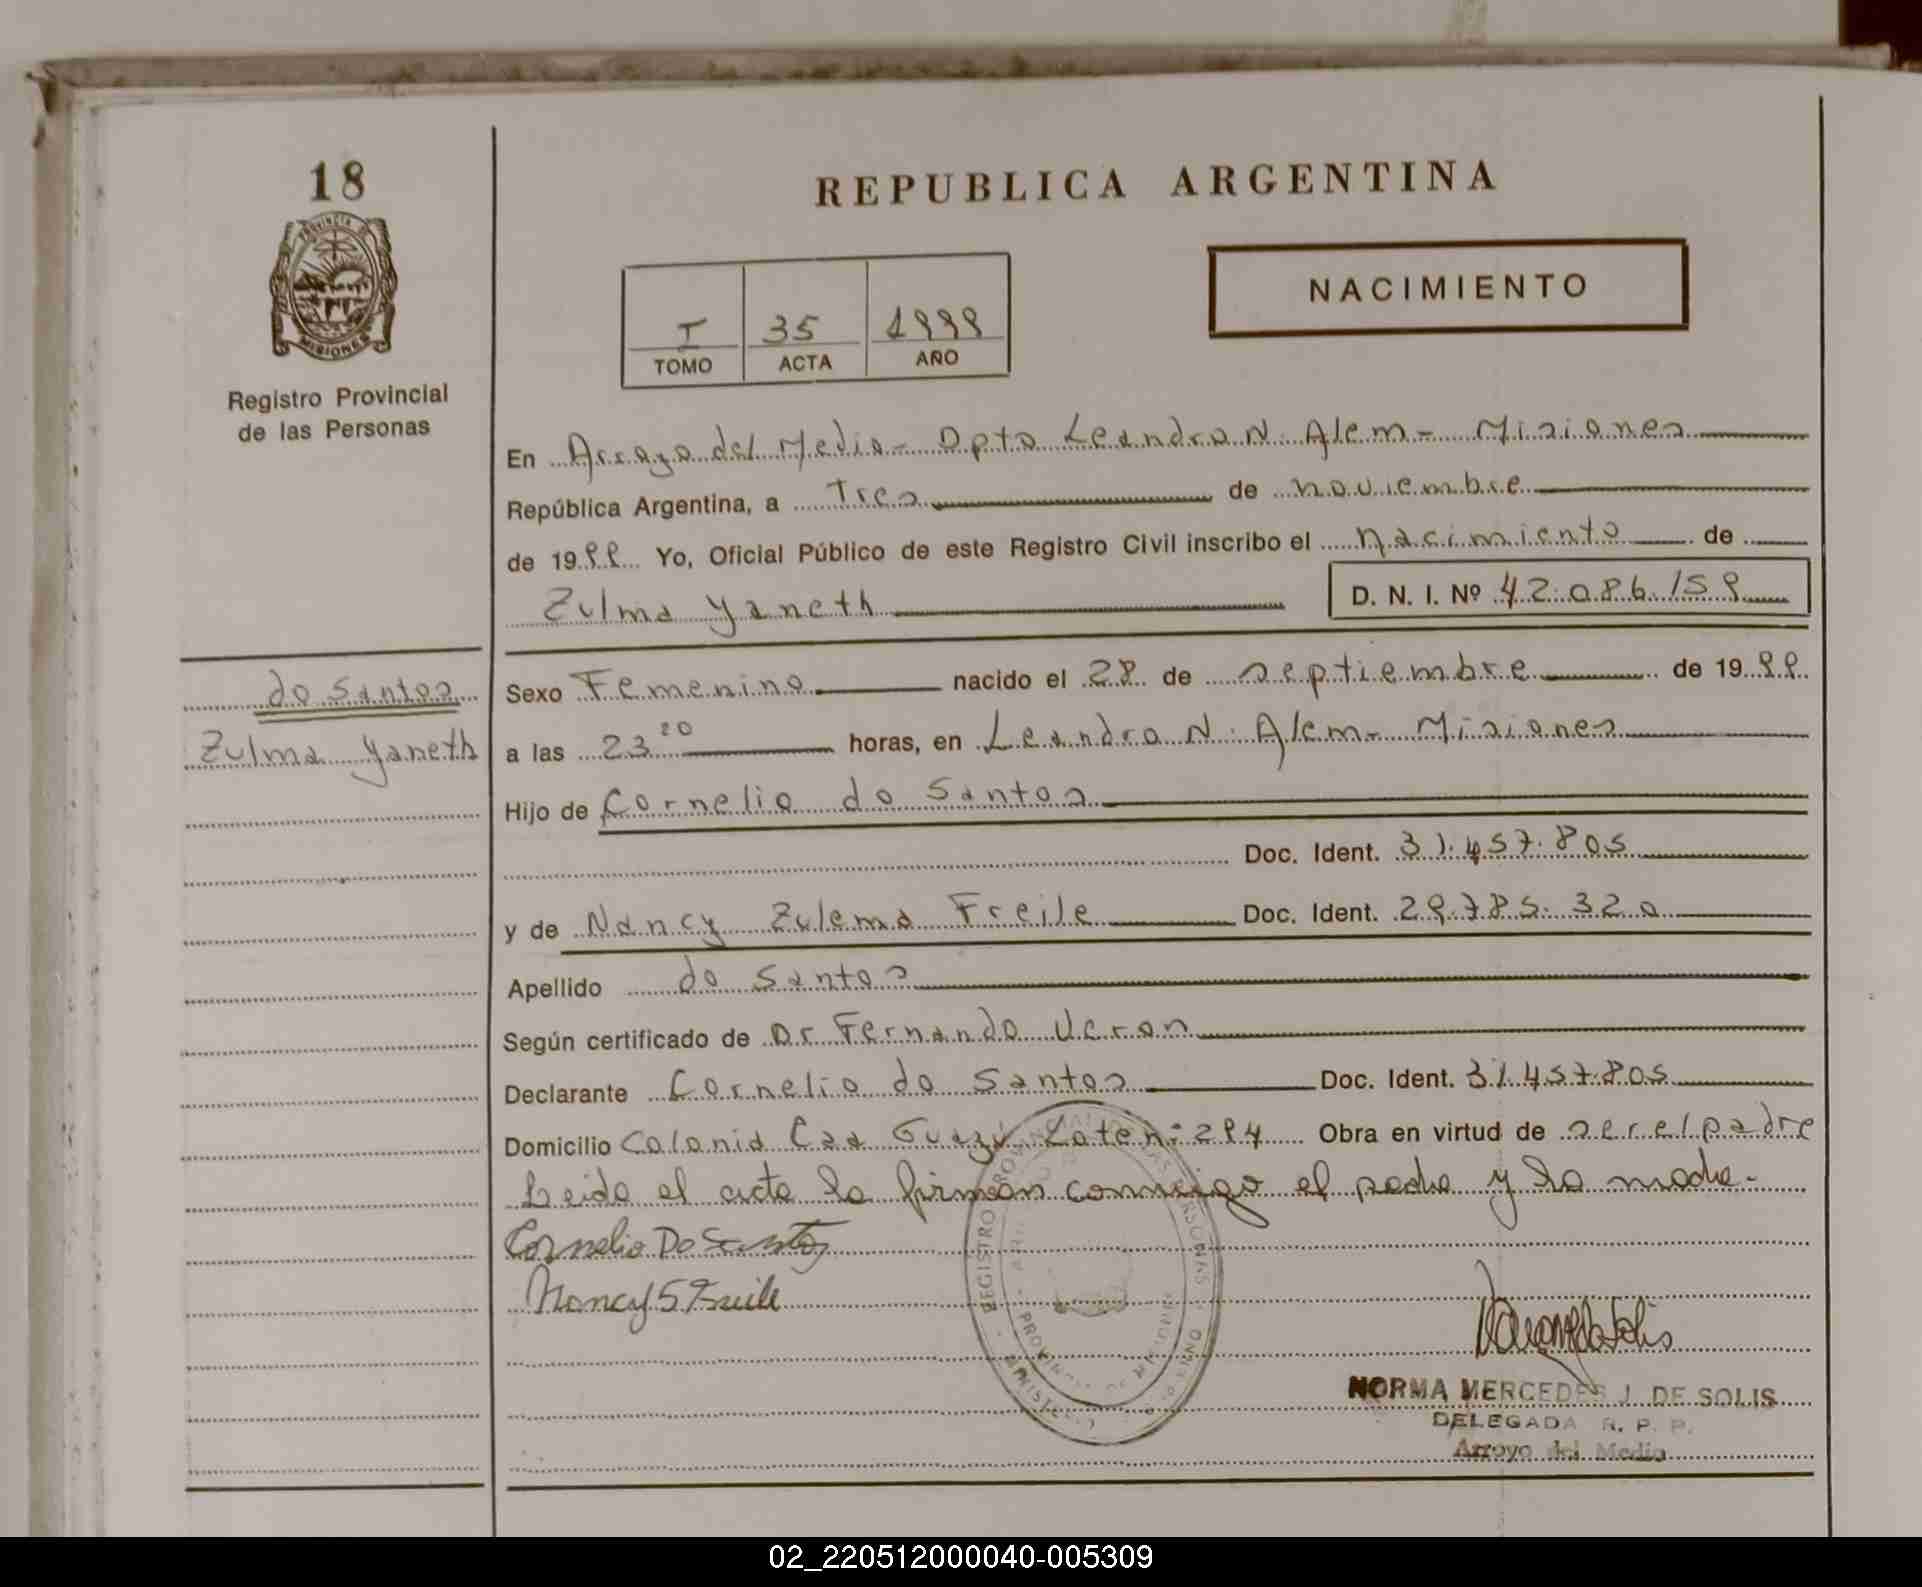 18
REPUBLICA ARGENTINA
NACIMIENTO
PROVINCIA DE
MISIONES
Registro Provincial
de las Personas
I 35 1999
TOMO ACTA AÑO
En Arroyo del Medio - Dpto Leandro N. Alem - Misiones
República Argentina, a Tres de noviembre
de 1999 Yo, Oficial Público de este Registro Civil inscribo el nacimiento de
Zulma Yaneth D. N. I. Nº 42.086.159
do Santos
Zulma Yaneth
Sexo Femenino nacido el 28 de septiembre de 1999
a las 23 20 horas, en Leandro N. Alem - Misiones
Hijo de Cornelio do Santos
Doc. Ident. 31.457.805
y de Nancy Zulema Freile Doc. Ident. 29.785.320
Apellido do Santos
Según certificado de Dr Fernando Veron
Declarante Cornelio do Santos Doc. Ident. 31.457.805
Domicilio Colonia Caa Guazú Lote nº 294 Obra en virtud de ser el padre
Leida el acta la firman conmigo el padre y la madre-
Cornelio Do Santos
Nancy S Freile
REGISTRO PROVINCIAL DE LAS PERSONAS
PROVINCIA DE MISIONES
MINISTERIO
NORMA MERCEDES J. DE SOLIS
DELEGADA R. P. P.
Arroyo del Medio
02_220512000040-005309